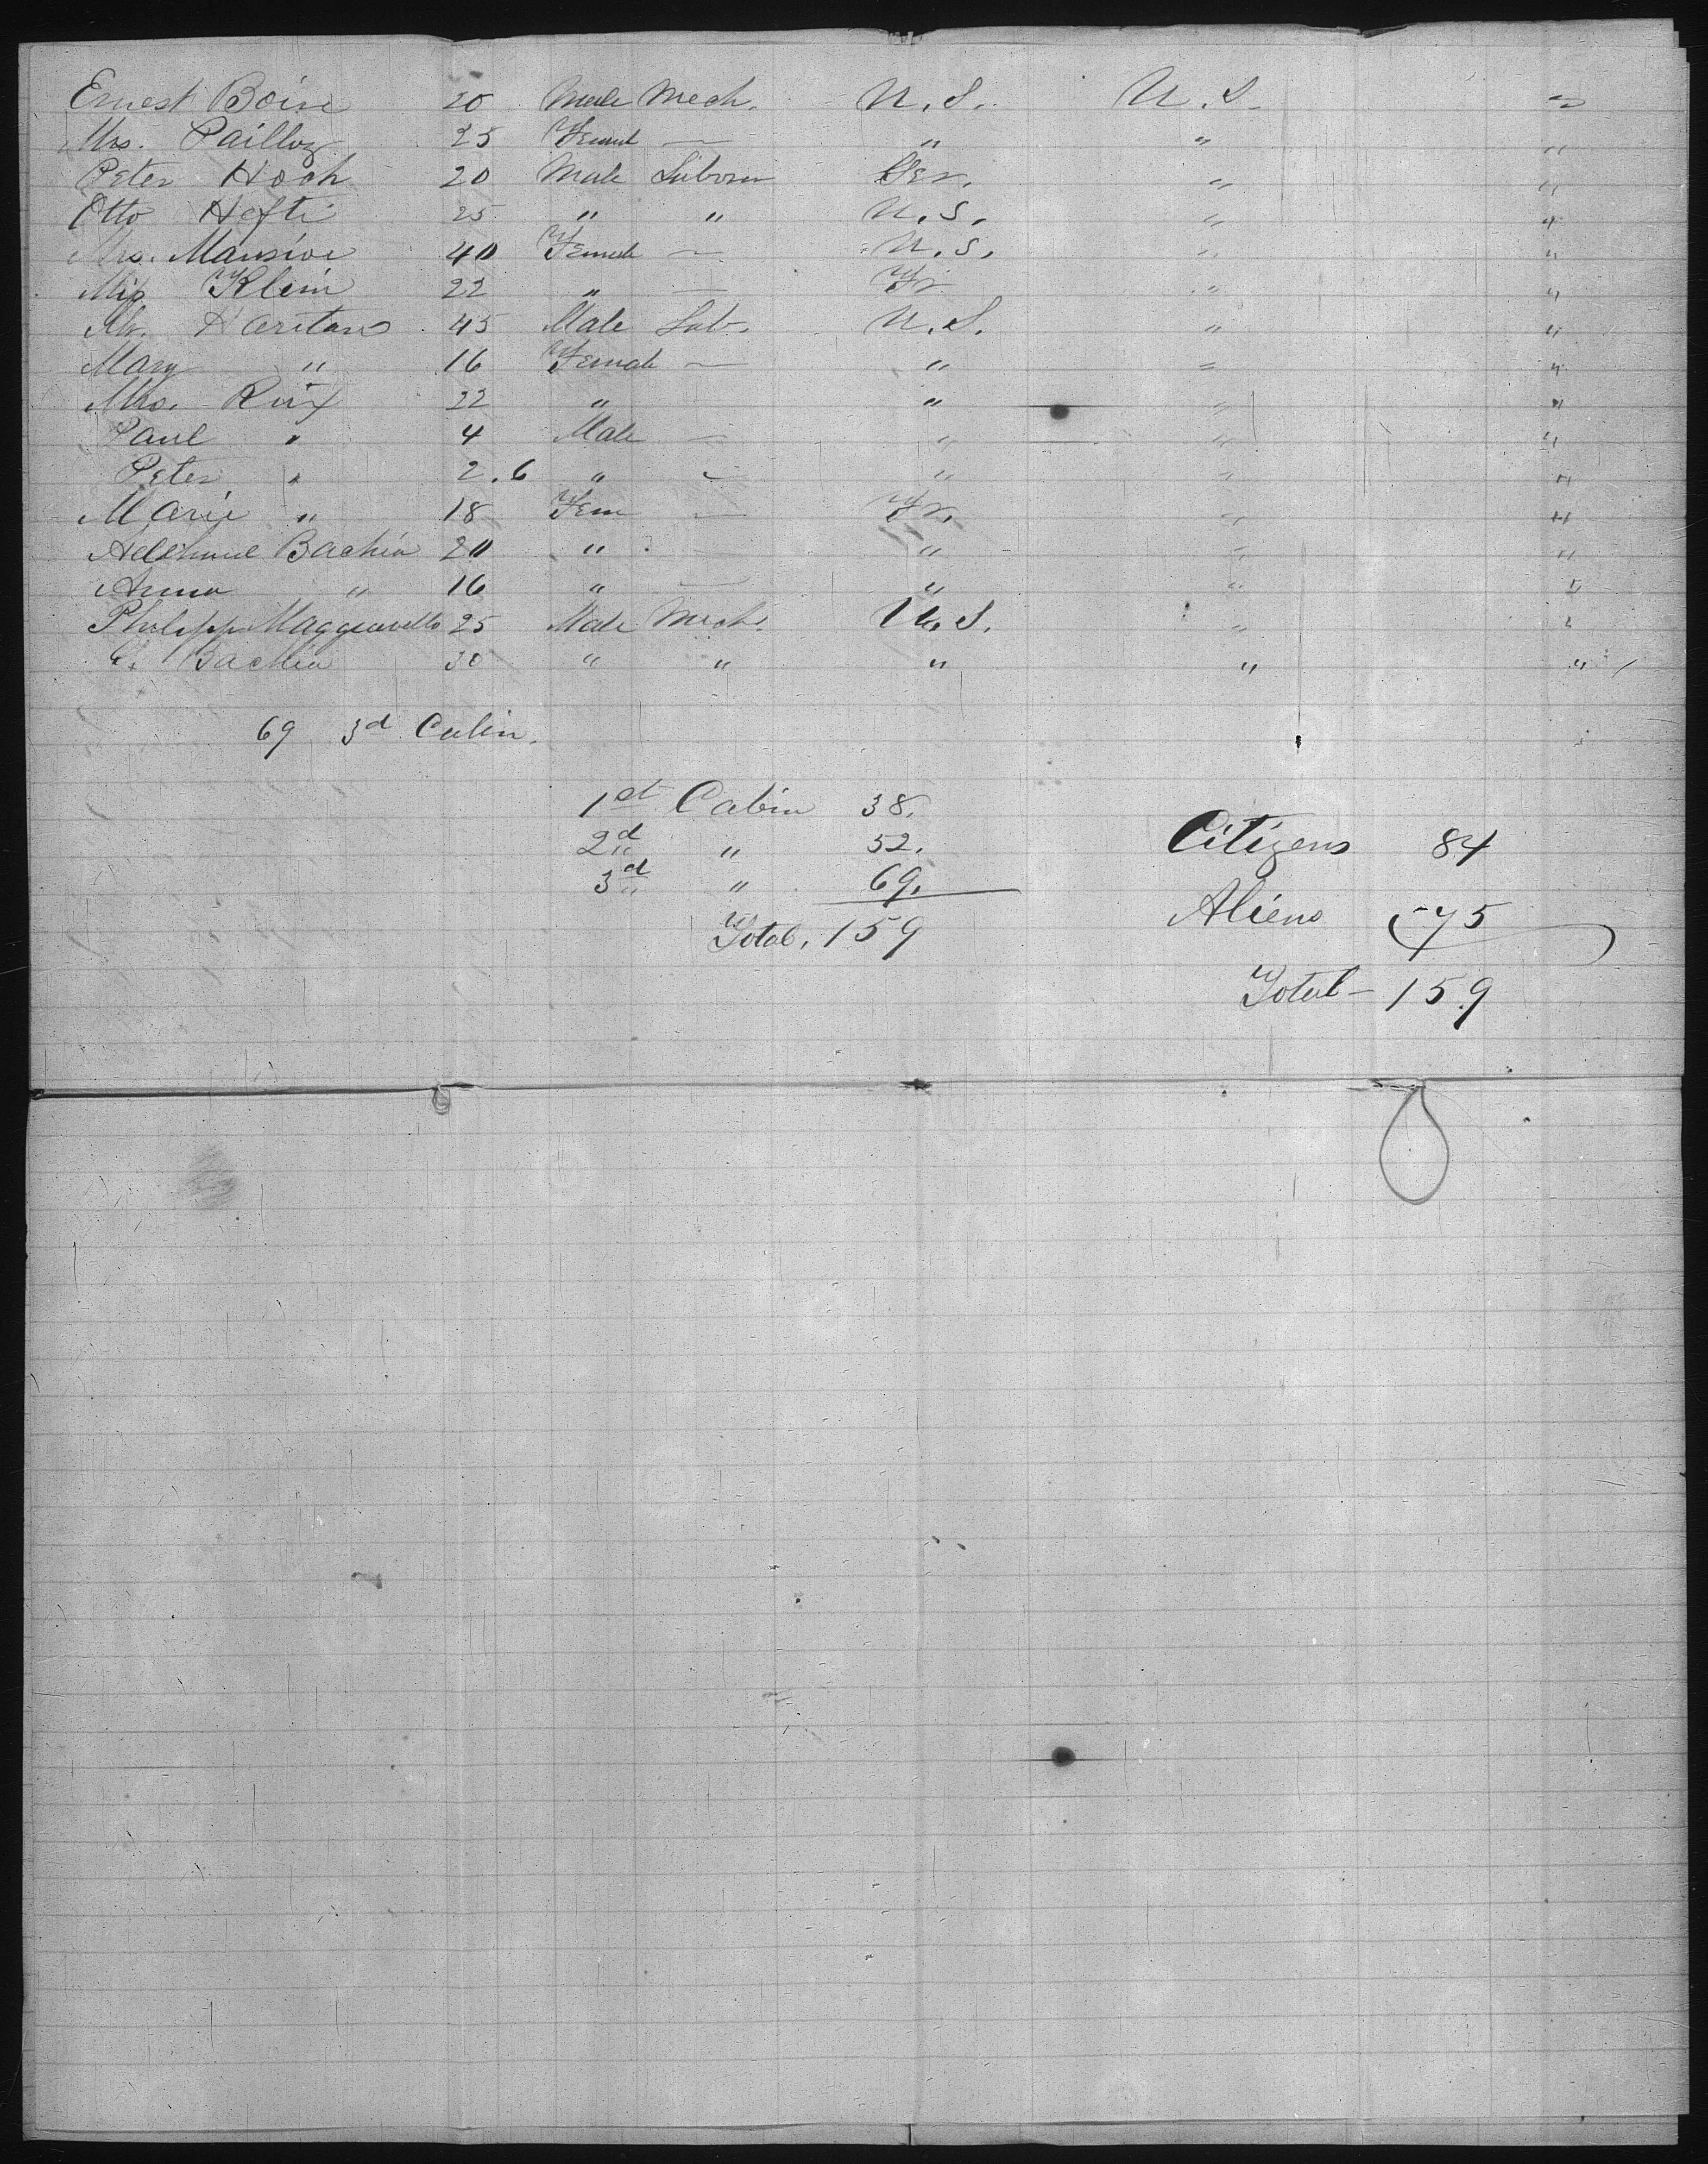 Ernest Boise 20 Male Mech. U.S. U.S. "
Mrs. Pailloz 25 Femal — " " "
Peter Hoch 20 Male Laborer Ger. " "
Otto Hefti 25 " " U.S. " "
Mrs. 40 Female — U.S. " "
Miss Klein 22 " — Fr. " "
Mr. Haritan 45 Male Lab. U.S. " "
Mary " 16 Female — " " "
Mrs. Rux 22 " " " "
Paul " 4 Male — " " "
Peter " 2.6 " — " " "
Marie " 18 Fem — Fr. " "
Bachia 20 " — " " "
Anna " 16 " — " " "
Philipp 25 Male Mech. U.S. " "
Bachia 30 " " " " "
69 3d Cabin.
1st Cabin 38.
2d " 52.
3d " 69.
Total. 159
Citizens 84
Aliens 75
Total — 159